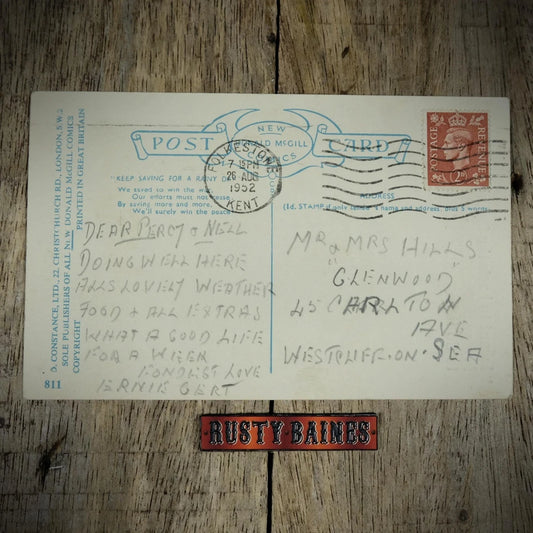 POST
NEW
DONALD McGILL
COMICS
CARD
FOLKESTONE
7 15 PM
26 AUG
1952
KENT
POSTAGE
REVENUE
2D
"KEEP SAVING FOR A RAINY
We saved to win the war,
Our efforts must not cease
By saving more and more,
We'll surely win the peace
ADDRESS
(1d. STAMP if only sender's name and address, plus 5 words
DEAR PERCY & NELL
DOING WELL HERE
ALLS LOVELY WEATHER
FOOD & ALL EXTRAS
WHAT A GOOD LIFE
FOR A WEEK
FONDEST LOVE
ERNIE GERT
MR & MRS HILLS
"GLENWOOD"
45 CARLTON
AVE
WESTCLIFF-ON-SEA
D. CONSTANCE, LTD., 22 CHRISTCHURCH RD., LONDON, S.W.
SOLE PUBLISHERS OF ALL NEW DONALD McGILL COMICS
COPYRIGHT PRINTED IN GREAT BRITAIN
811
RUSTY BAINES